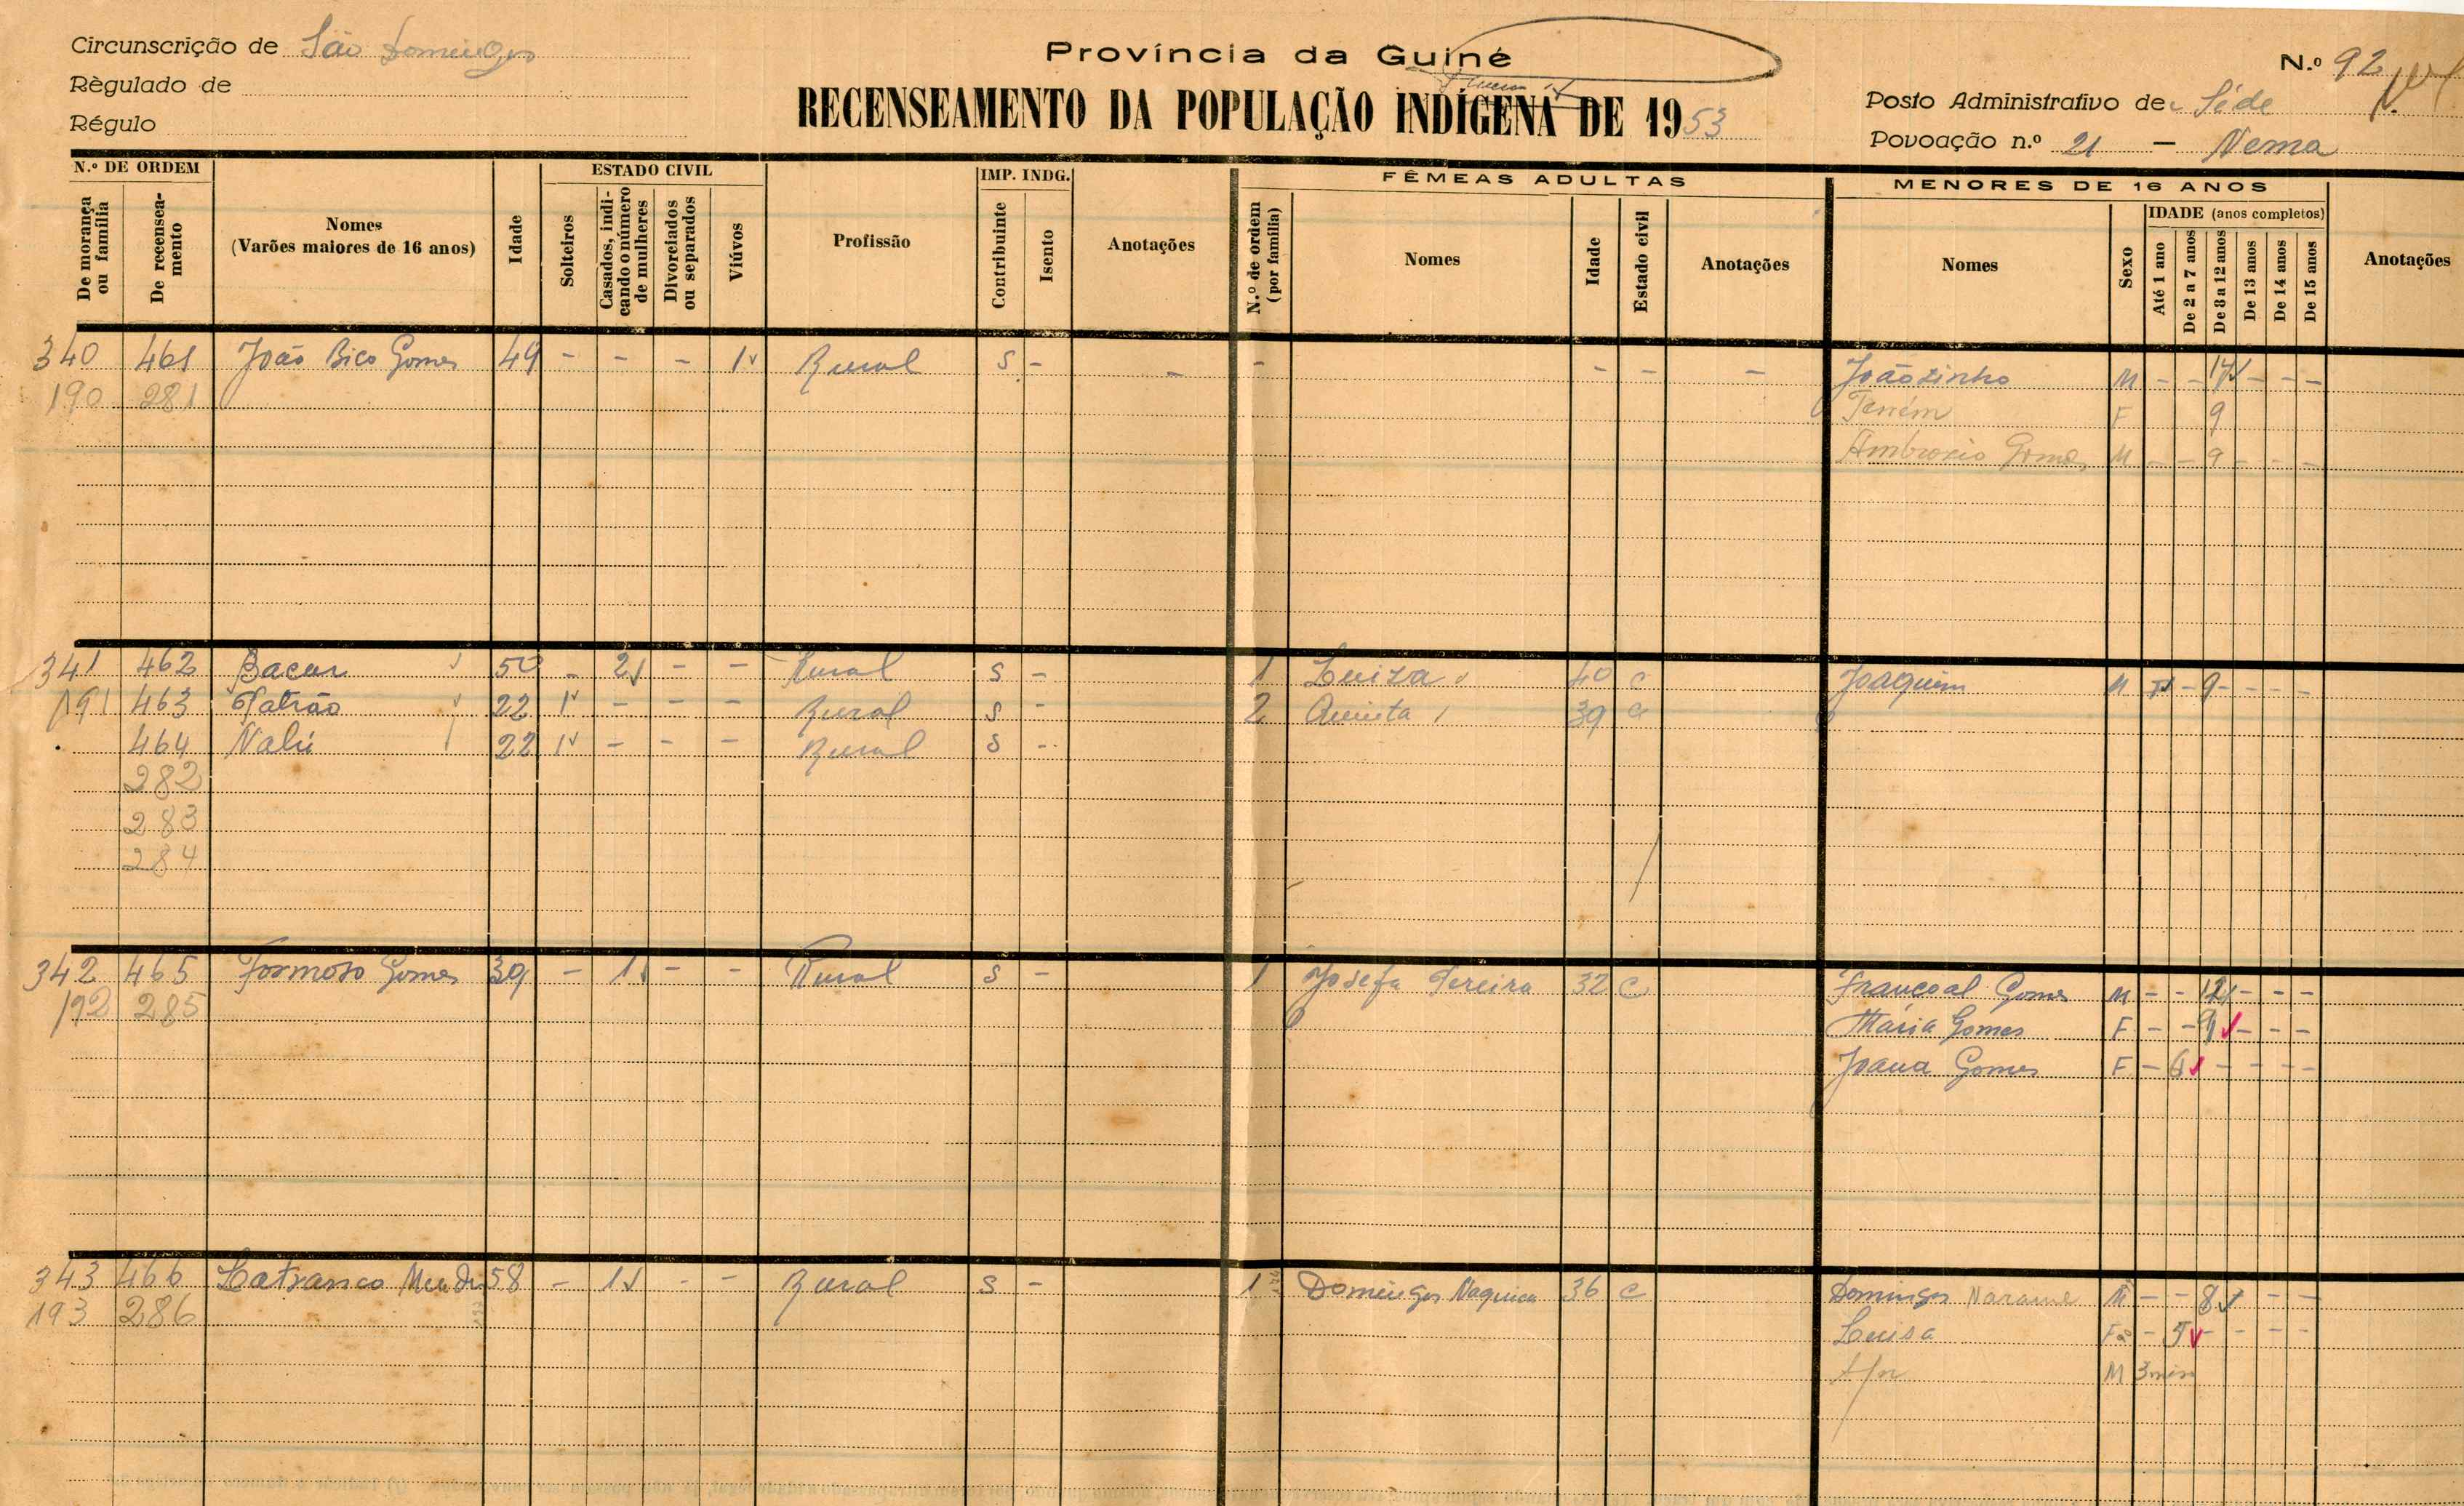 Circunscrição de São Domingos
Règulado de
Régulo
Província da Guiné
RECENSEAMENTO DA POPULAÇÃO INDÍGENA DE 1953
N.º 92
Posto Administrativo de Séde
Povoação n.º 21 — Nema
N.º DE ORDEM
De morança ou família
De recenseamento
Nomes
(Varões maiores de 16 anos)
Idade
ESTADO CIVIL
Solteiros
Casados, indicando o número de mulheres
Divorciados ou separados
Viúvos
Profissão
IMP. INDG.
Contribuinte
Isento
Anotações
FÊMEAS ADULTAS
N.º de ordem (por família)
Nomes
Idade
Estado civil
Anotações
MENORES DE 16 ANOS
Nomes
Sexo
IDADE (anos completos)
Até 1 ano
De 2 a 7 anos
De 8 a 12 anos
De 13 anos
De 14 anos
De 15 anos
Anotações
340 461 João Bico Gomes 49 - - - 1 Rural S - - - - - - Joãozinho M - - - - -
190 281 F 9
Ambrosio Gomes M - - 9 - - -
341 462 Bacar 50 - 2 - - Rural S - 1 Luiza 40 C Joaquim M - 9 - - -
191 463 Patrão 22 1 - - - Rural S - 2 39 C
464 Nalú 22 1 - - - Rural S -
282
283
284
342 465 Formoso Gomes 39 - 1 - - Rural S - 1 Josefa Pereira 32 C Françoal Gomes M - - 12 - - -
192 285 Maria Gomes F - - 9 - - -
Joana Gomes F - 6 - - - -
343 466 58 - 1 - - Rural S - 1 Domingas 36 C Domingos M - - 8 - -
193 286 Luisa F - 5 - - - -
M 3